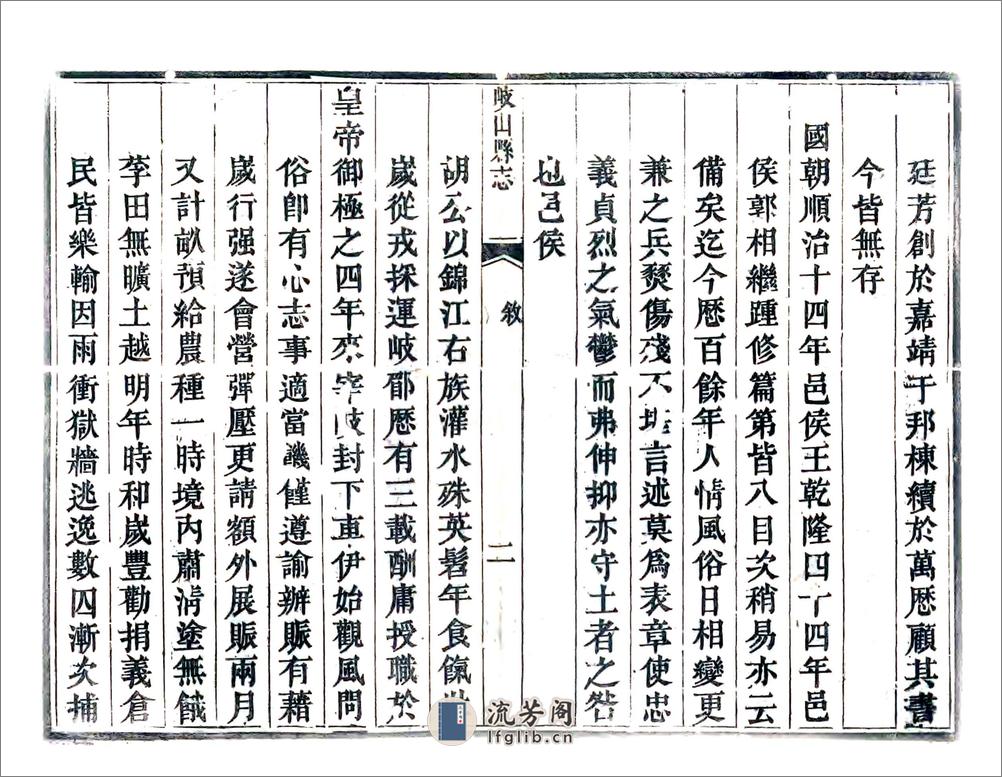 廷芳創於嘉靖于邦棟續於萬厯顧其書
今皆無存
國朝順治十四年邑侯王乾隆四十四年邑
侯郭相繼踵修篇第皆八目次稍易亦云
備矣迄今厯百餘年人情風俗日相變更
兼之兵燹傷殘不堪言述莫爲表章使忠
義貞烈之氣鬱而弗伸抑亦守土者之咎
也邑侯
岐山縣志
敘
二
胡公以錦江右族灌水殊英髫年食餼
嵗從戎採運岐郿厯有三載酬庸授職於
皇帝御極之四年來宰岐封下車伊始觀風問
俗卽有心志事適當譏僅遵諭辦賑有藉
嵗行强遂會營彈壓更請額外展賑兩月
又計畝預給農種一時境內肅淸塗無餓
莩田無曠土越明年時和嵗豐勸捐義倉
民皆樂輸因雨衝獄牆逃逸數四漸次捕
流芳阁
lfglib.cn